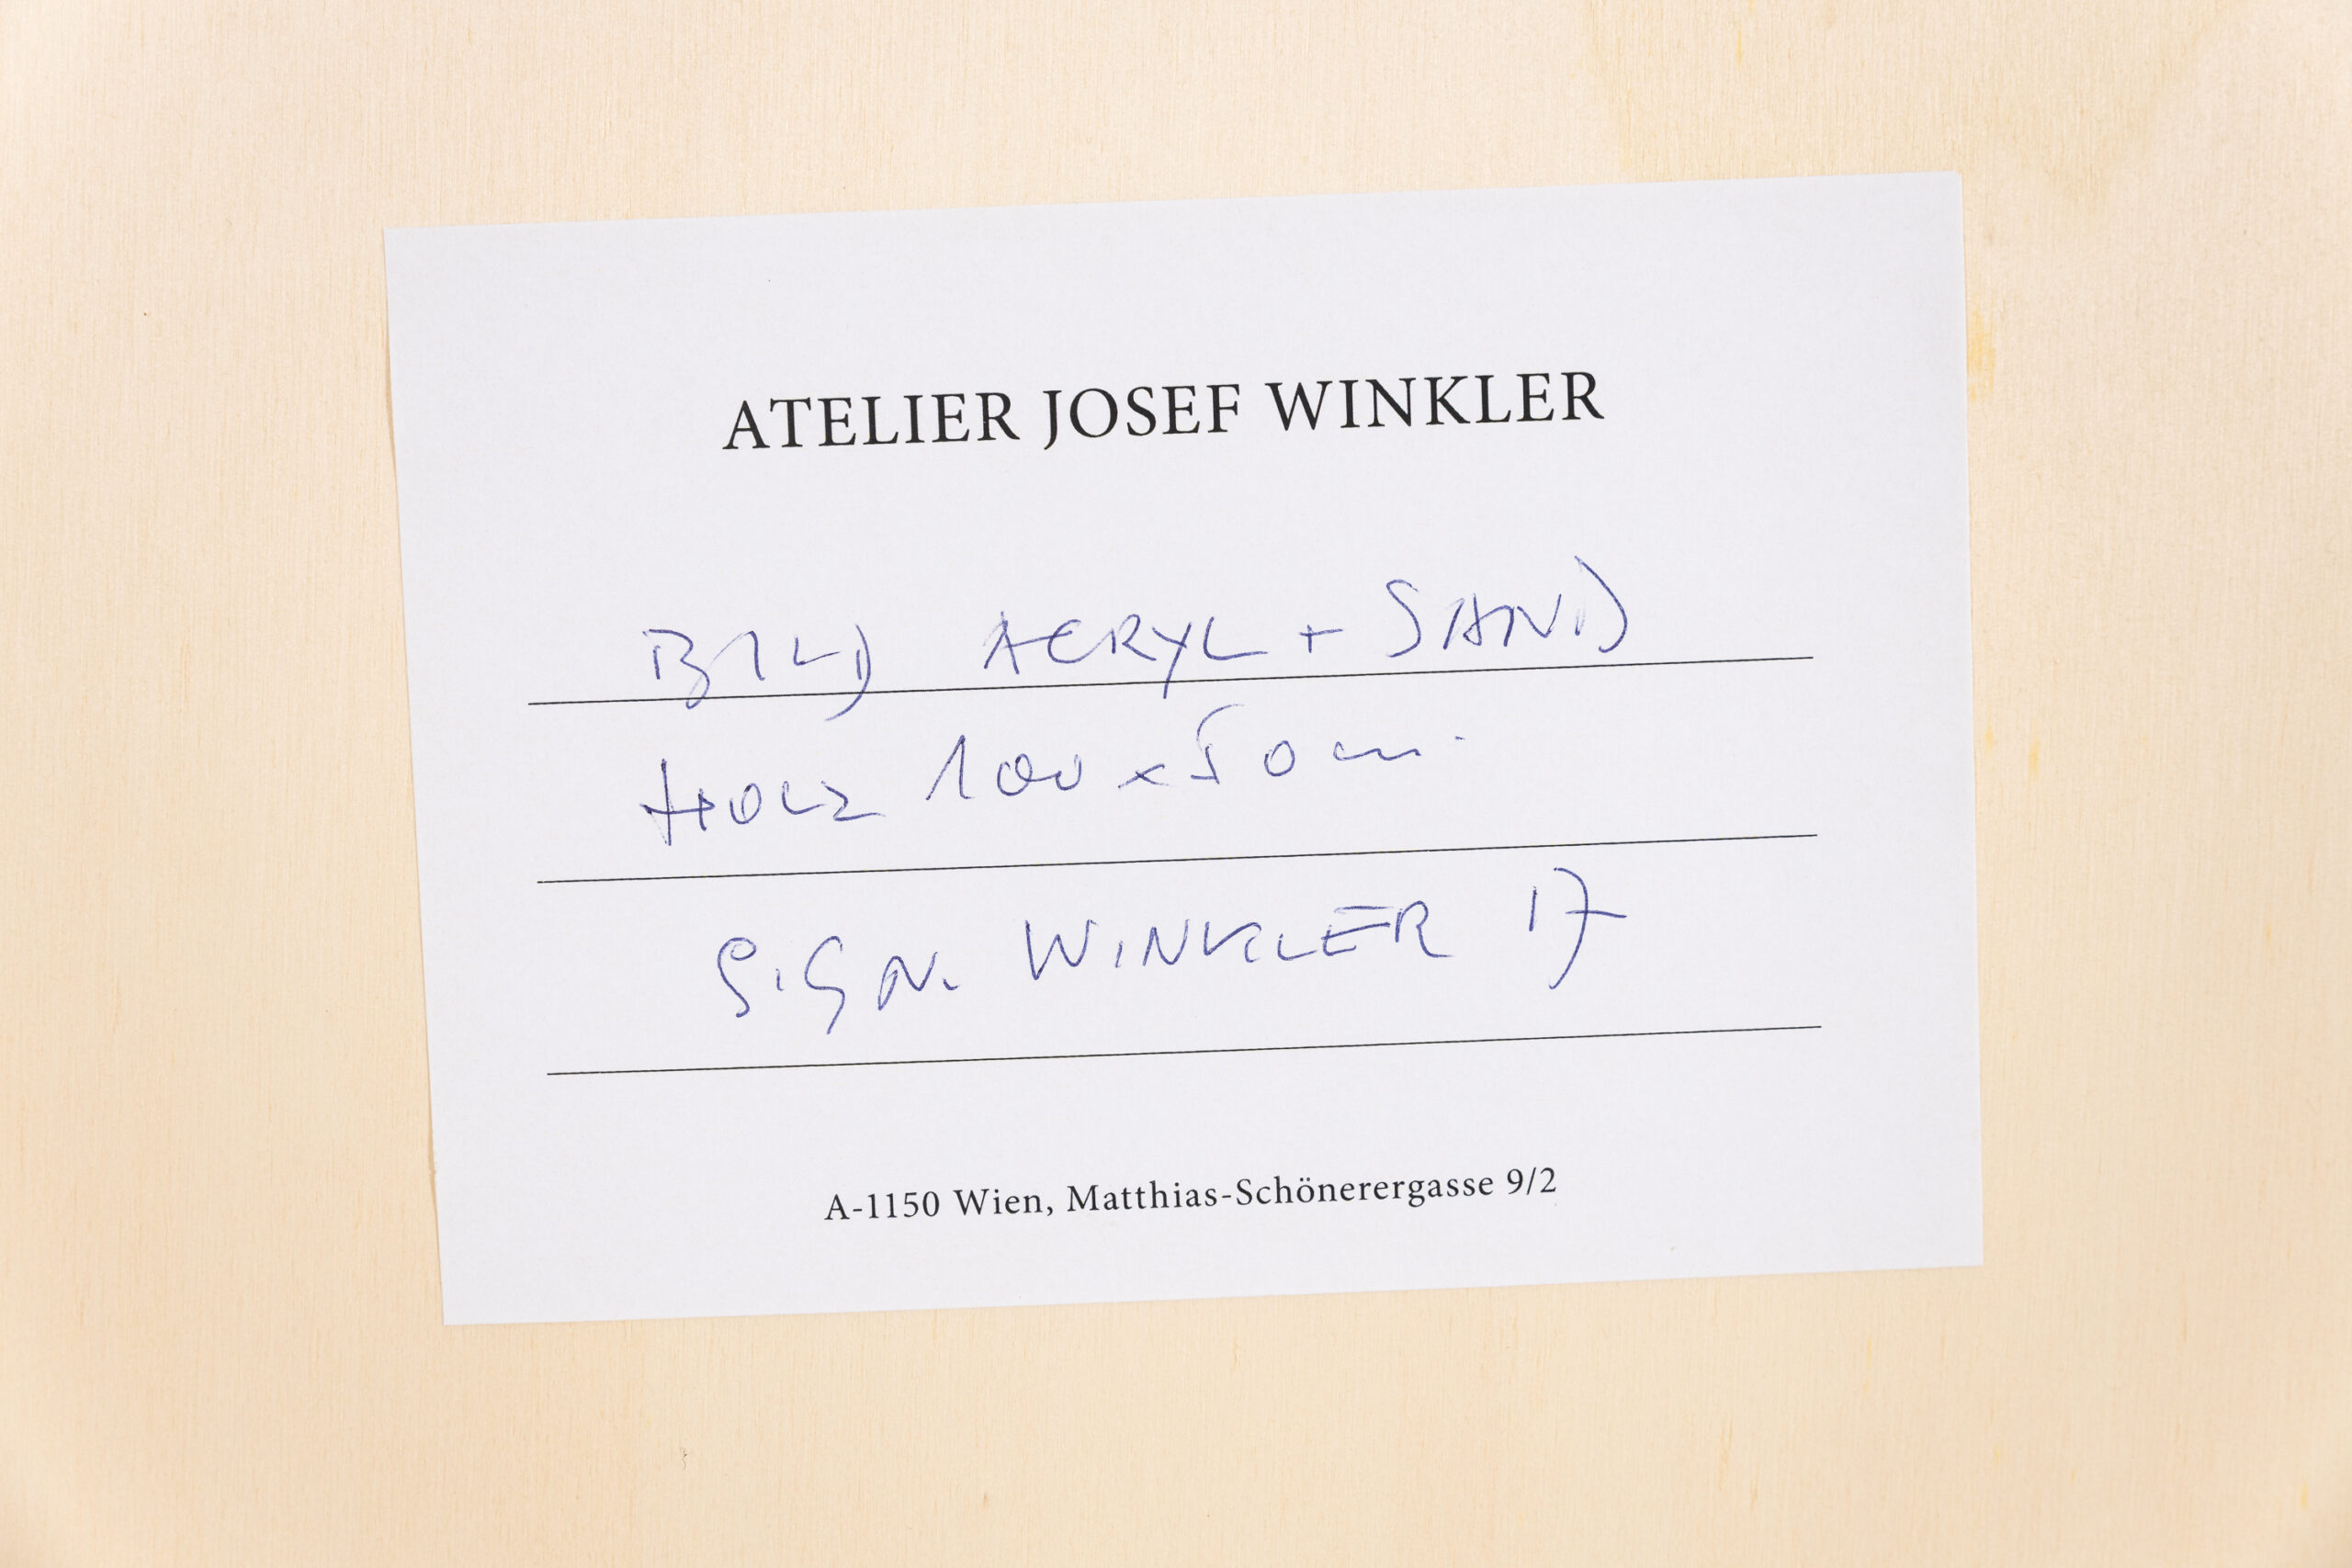 ATELIER JOSEF WINKLER
BILD ACRYL + SAND
HOLZ 100 x 50 cm.
SIGN. WINKLER 17
A-1150 Wien, Matthias-Schönerergasse 9/2